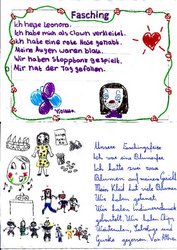 Fasching
Ich heiße Leonora.
Ich habe mich als Clown verkleidet.
Ich habe eine rote Nase gehabt.
Meine Augen waren blau.
Wir haben Stopptanz gespielt.
Mir hat der Tag gefallen.
Unsere Faschingsfeier
Ich war eine Blumenfee.
Ich hatte zwei rosa
Blumen auf meinem Gesicht.
Mein Kleid hat viele Blumen.
Wir haben getanzt.
Wir haben
gebastelt. Wir haben Chips,
Würstchen, und
Gurke gegessen. Von